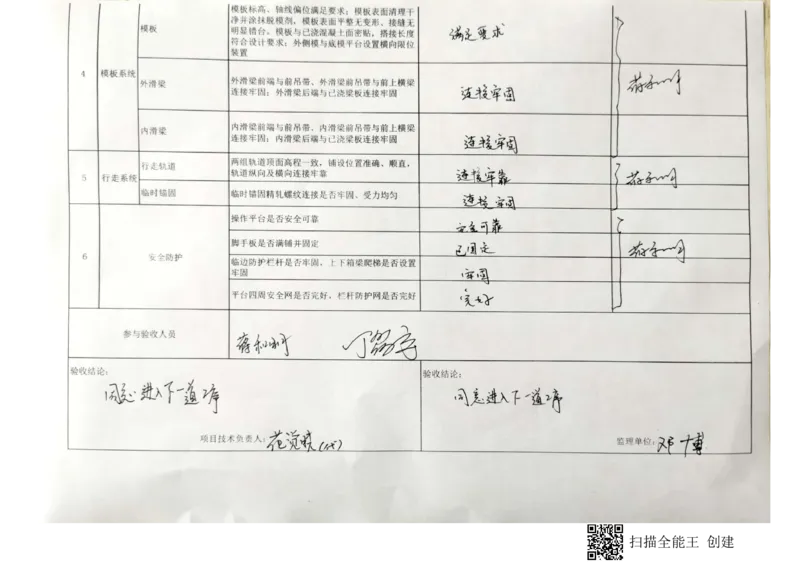 模板标高、轴线偏位满足要求；模板表面清理干
净并涂抹脱模剂，模板表面平整无变形，接缝无
明显错台；模板与已浇混凝土面密贴，搭接长度
符合设计要求；外侧模与底模平台设置横向限位
装置
模板
满足要求
4
模板系统
外滑梁
外滑梁前端与前吊带、外滑梁前吊带与前上横梁
连接牢固；外滑梁后端与已浇梁板连接牢固
连接牢固
内滑梁
内滑梁前端与前吊带、内滑梁前吊带与前上横梁
连接牢固；内滑梁后端与已浇梁板连接牢固
连接牢固
5
行走系统
行走轨道
两组轨道顶面高程一致，铺设位置准确、顺直，
轨道纵向及横向连接牢靠
连接牢靠
临时锚固
临时锚固精轧螺纹连接是否牢固、受力均匀
连接牢固
6
安全防护
操作平台是否安全可靠
安全可靠
脚手板是否满铺并固定
已固定
临边防护栏杆是否牢固，上下箱梁爬梯是否设置
牢固
牢固
平台四周安全网是否完好，栏杆防护网是否完好
完好
参与验收人员
验收结论：
同意进入下一道工序
项目技术负责人：
(代)
验收结论：
同意进入下一道工序
监理单位：邓博
扫描全能王 创建